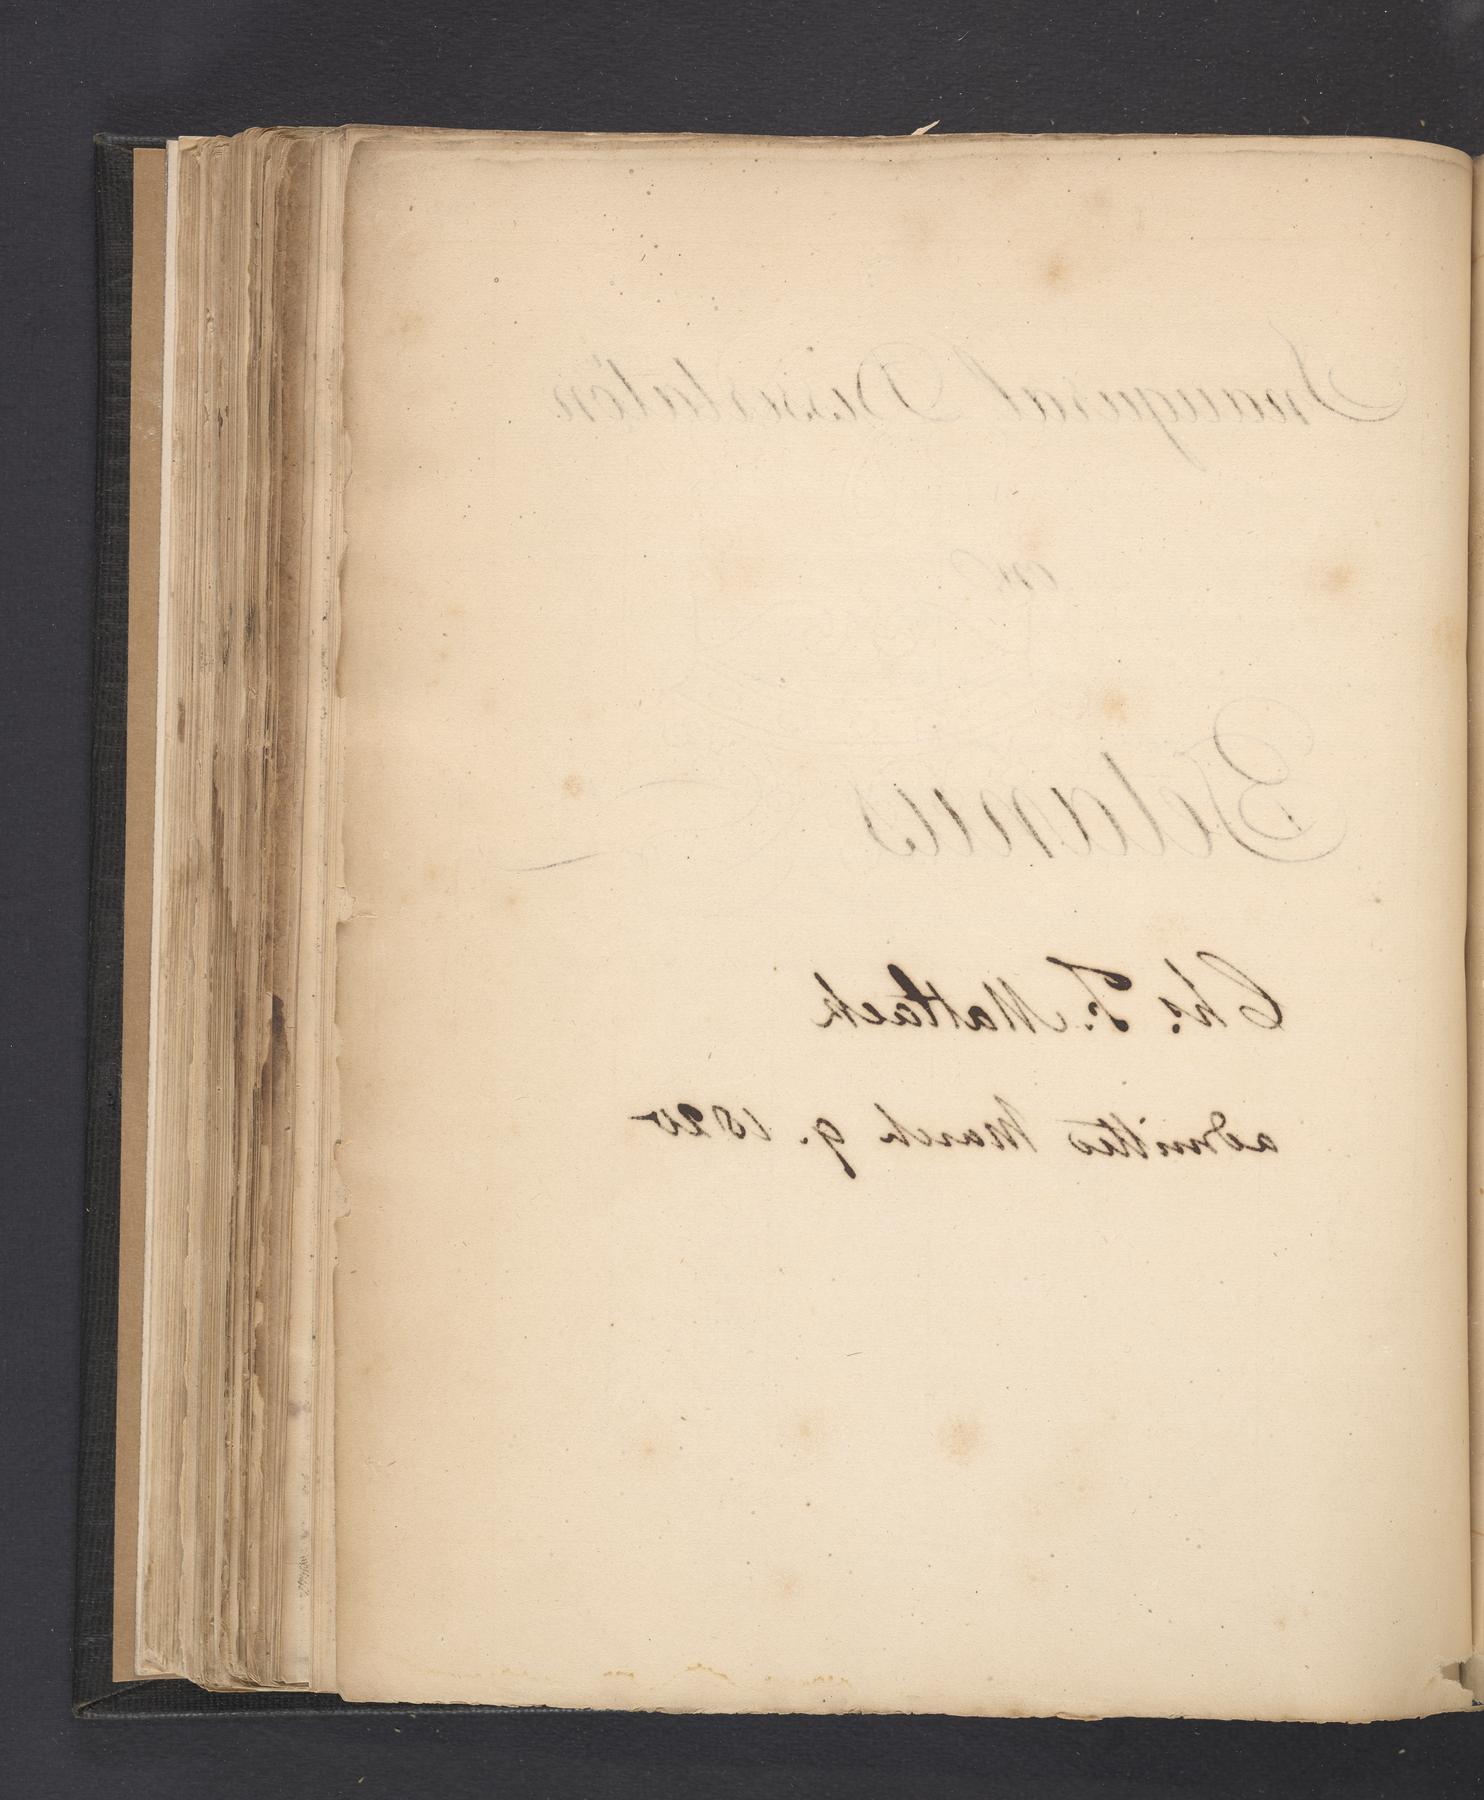 Inaugural Dissertation
on
Tetanus
Chs. F. Matlack
admitted March 9. 1820